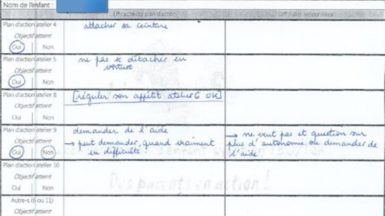 Nom de l'enfant :
Plan d'action atelier 4
attacher sa ceinture
Objectif atteint
Oui Non
Plan d'action atelier 5
ne pas se détacher en
voiture
Objectif atteint
Oui Non
Plan d'action atelier 8
[réguler son appétit atelier 6 OK]
Objectif atteint
Oui Non
Plan d'action atelier 9
demander de l'aide
→ ne veut pas et question sur
Objectif atteint
→ peut demander, quand vraiment
plus d'autonomie ou demander de
Oui Non
en difficulté
l'aide
Plan d'action atelier 10
Objectif atteint
Oui Non
Des parents en action !
Autre-s (6 ou 11)
Objectif atteint